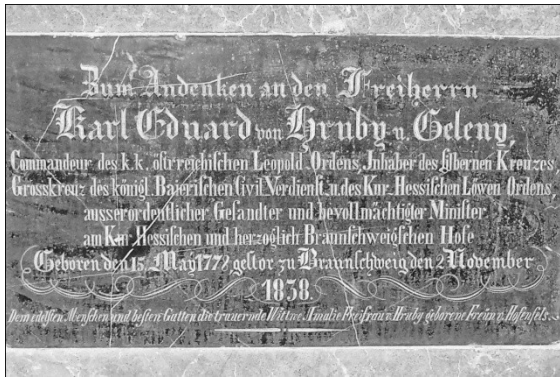 Zum Andenken an den Freiherrn
Karl Eduard von Hruby u. Geleny,
Commandeur des k.k. östreichischen Leopold-Ordens, Inhaber des silbernen Kreuzes,
Grosskreuz des königl. Baierischen Civil Verdienst u. des Kur-Hessischen Löwen Ordens
ausserordentlicher Gesandter und bevollmächtigter Minister
am Kur Hessischen und herzoglich Braunschweigschen Hofe
Geboren den 15. May 1779 gestor zu Braunschweig den 2 November
1838.
Dem edelsten Menschen und besten Gatten die trauernde Wittwe Amalie Freifrau v. Hruby geborene Freiin v. Hofenfels.